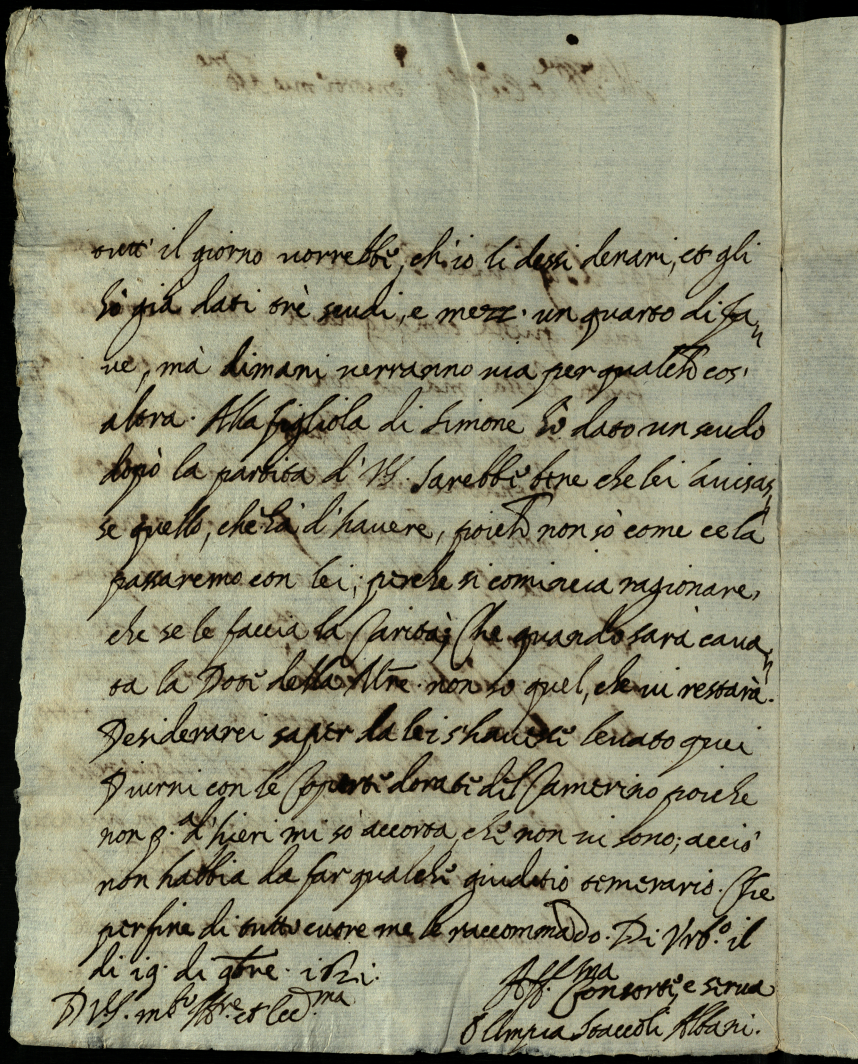 tutt' il giorno vorrebbe, ch'io li dessi denari, et gli
hò già dati trè scudi, e mezz. un quarto di fa-
ue, mà dimani verranno uia per qualche cos'
altra. Alla figliola di Simone hò dato un scudo
dopò la partita d' VS. Sarebbe bene che lei auisas-
se quello, che hà d'hauere, poiche non sò come ce la
passaremo con lei, perche si comincia ragionare,
che se le faccia la Carità; Che quando sarà caua-
ta la Dote della Mre. non so quel, che ui restarà.
Desiderarei saper da lei s'hauesse leuato quei
Diurni con le Coperte dorate del Camerino poiche
non p.a d'hieri mi sò accorta, che non ui sono; acciò
non habbia da far qualche giuditio temerario. Che
per fine di tutto cuore me le raccommādo. Di Vrb.o il
di 19. di 9bre. 1621.
D VS. m.to
Aff.ma Consorte, e serua
Olimpia Staccoli Albani.